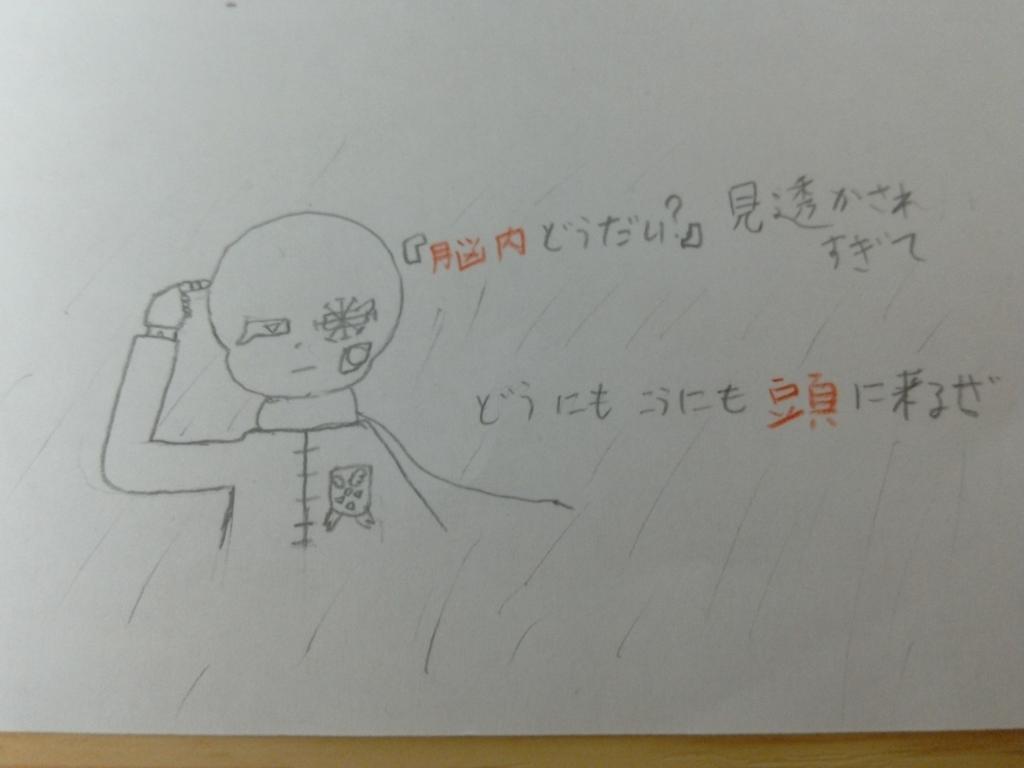 『脳内どうだい?』見透かされ
すぎて
どうにもこうにも頭に来るぜ